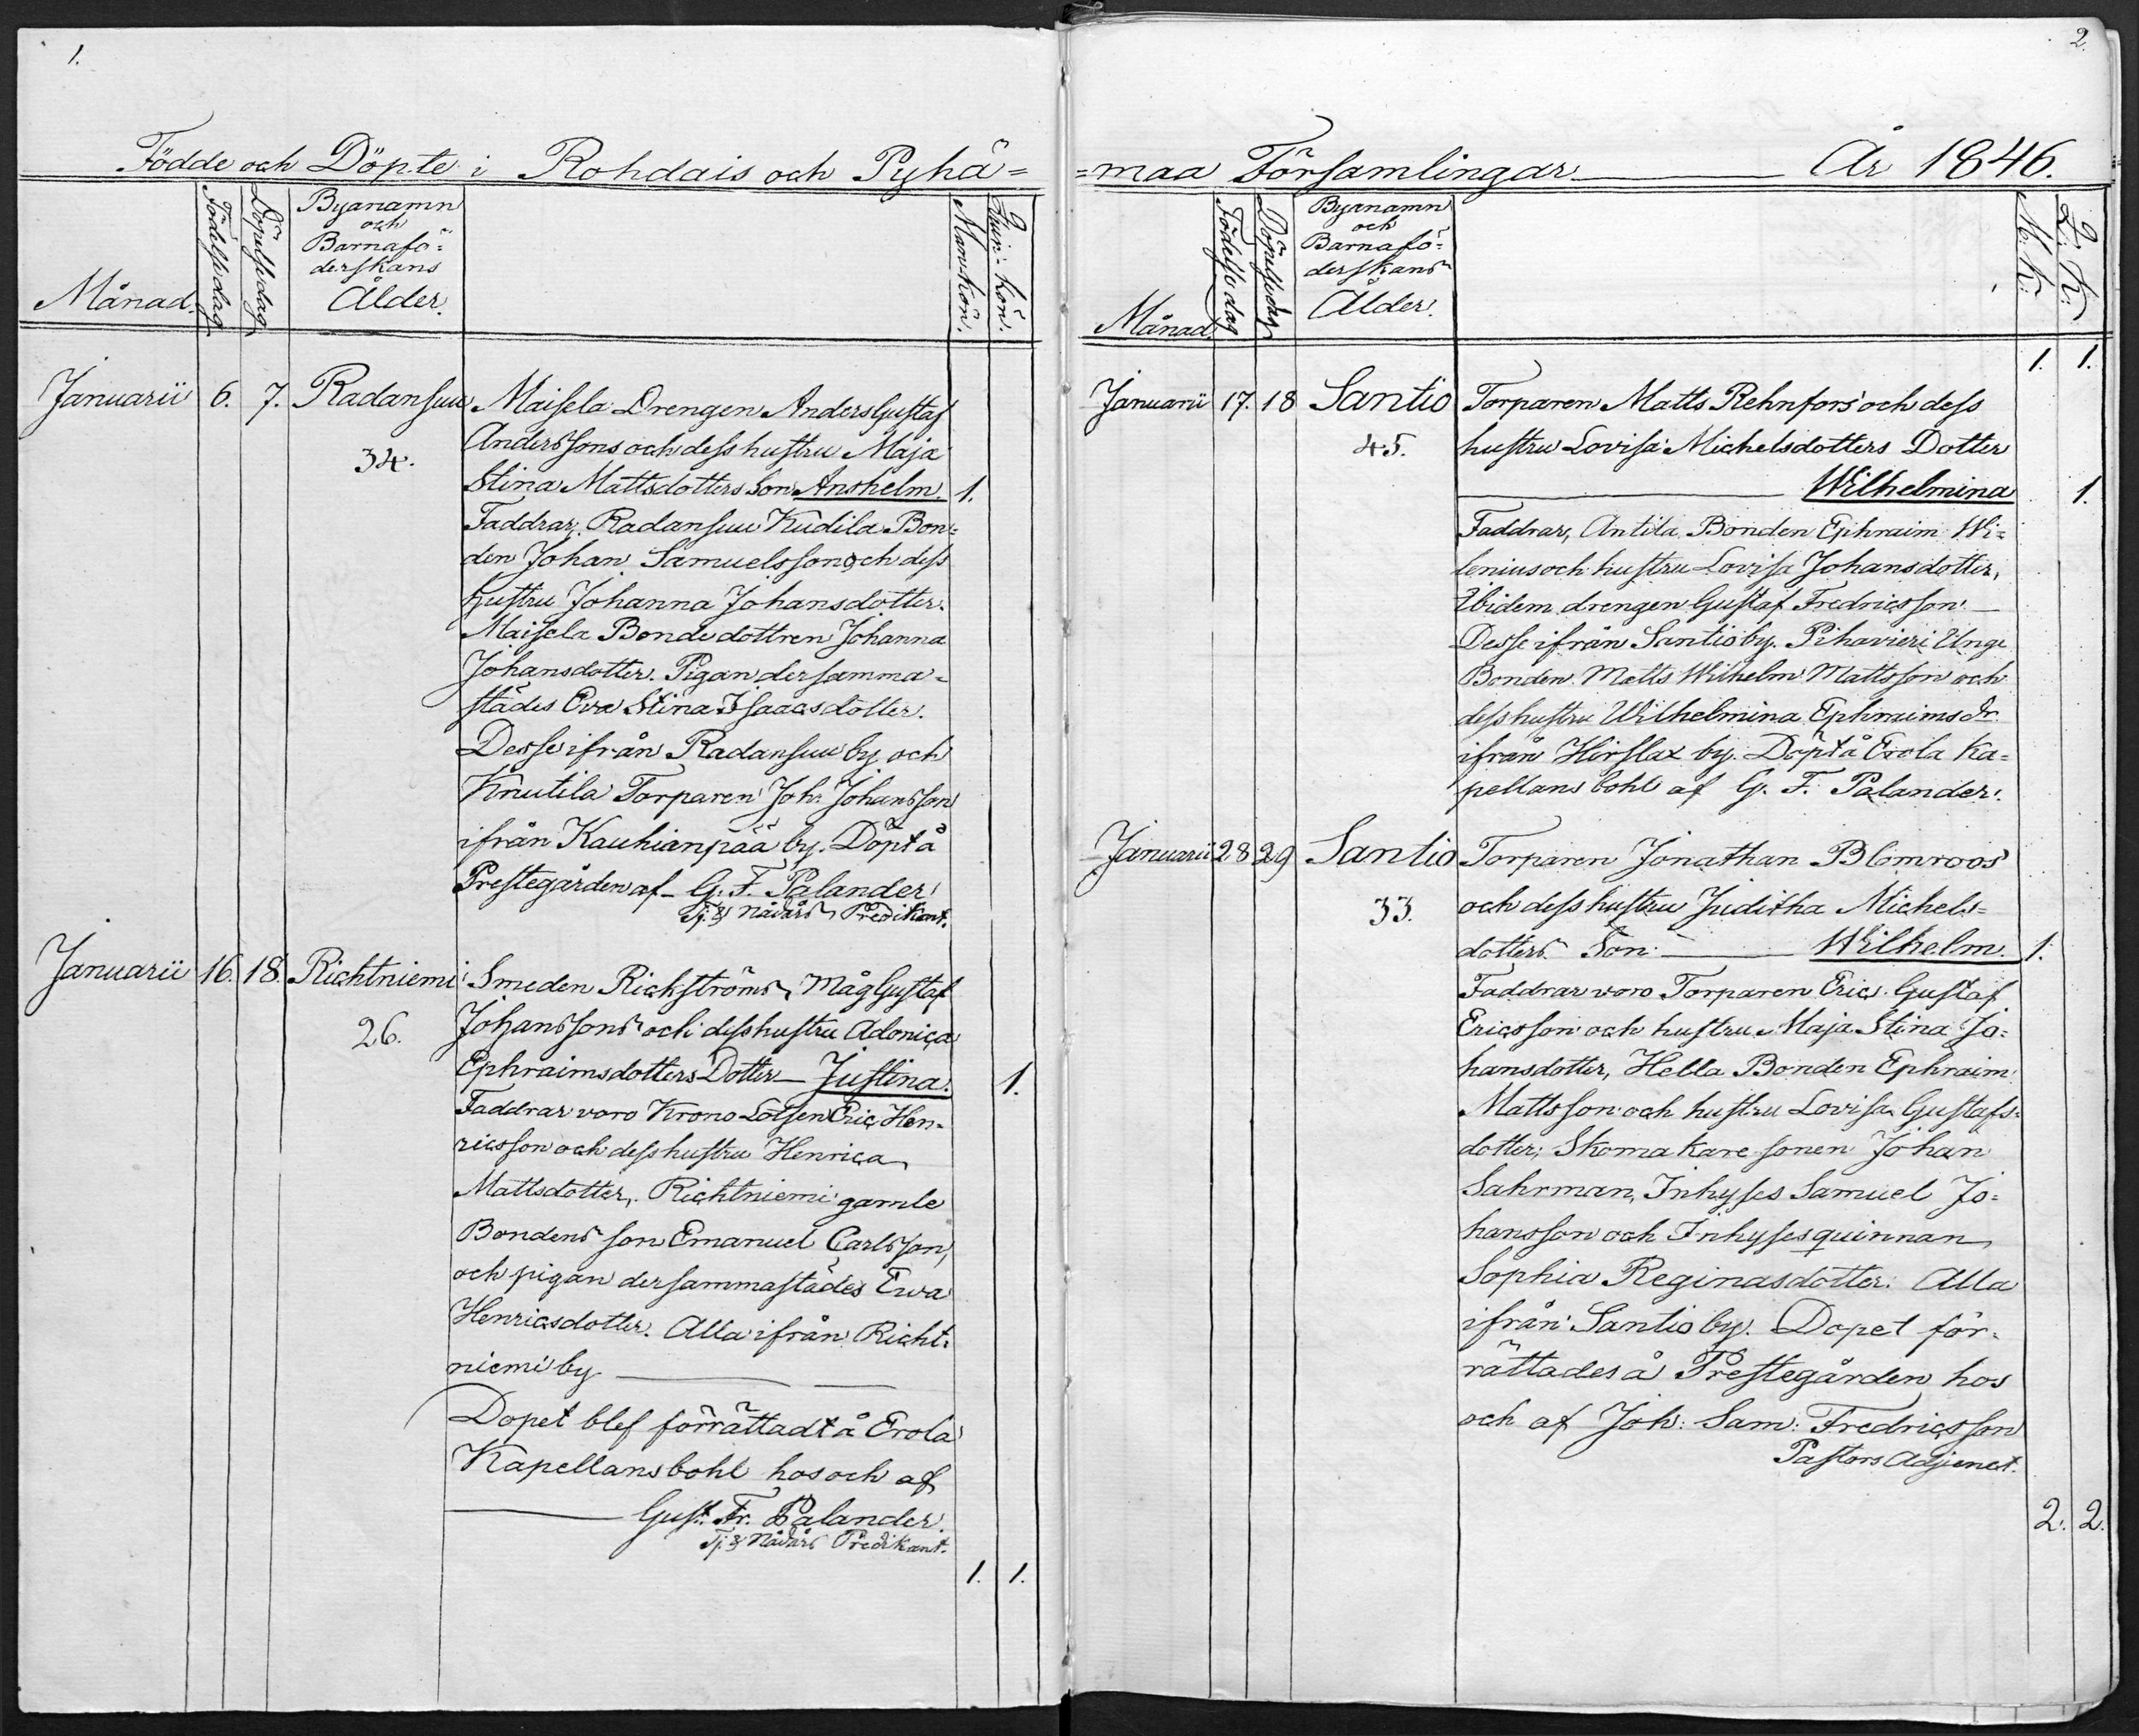 1.
Födde och Döpte i Rohdais och Pyhä=
Månad.
Födelsedag
Döpelsedag
Byanamn
och
Barnafö=
derskans
Ålder.
Mankön.
Quin= kön.
Januarii 6. 7. Radansuu Maisela Drengen Anders Gustaf
34. Anderssons och dess hustru Maja
Stina Mattsdotters Son Anshelm. 1.
Faddrar, Radansuu Kudila Bon=
den Johan Samuelsson och dess
hustru Johanna Johansdotter.
Maisela Bondedottren Johanna
Johansdotter. Pigan dersamma=
städes Eva Stina Isaacsdotter.
Desse ifrån Radansuu by, och
Knutila Torparen Joh: Johansson
ifrån Kauhianpää by. Döpt å
Prestegården af G. F. Palander
Nådårs Predikant.
Januarii 16. 18. Richtniemi Smeden Rickströms Måg Gustaf
26. Johanssons och dess hustru Adonica
Ephraimsdotters Dotter Justina. 1.
Faddrar voro Krono Lotsen Eric Hen=
ricsson och dess hustru Henrica
Mattsdotter, Richtniemi gamle
Bondens son Emanuel Carlsson,
och pigan dersammastädes Ewa
Henricsdotter. Alla ifrån Richt=
niemi by
Dopet blef förrättadt å Erola
Kapellansbohl hos och af
Gust. Fr. Palander.
Nådårs Predikant.
1. 1.
2.
=maa Församlingar År 1846.
Månad.
Födelsedag
Döpelsedag
Byanamn
och
Barnafö=
derskans
Ålder.
M. K:
Q. K:
1. 1.
Januarii 17. 18 Santio Torparen Matts Rehnfors och dess
45. hustru Lovisa Michelsdotters Dotter
Wilhelmina 1.
Faddrar, Antila Bonden Ephraim Wi=
lenius och hustru Lovisa Johansdotter,
Ibidem drengen Gustaf Fredricsson.
Desse ifrån Santio by. Pihavieri Unge
Bonden Matts Wilhelm Mattsson och
dess hustru Wilhelmina Ephraims dr.
ifrån Hirslax by. Döpt å Erola Ka=
pellans bohl af G. F. Palander.
Januarii 28 29 Santio Torparen Jonathan Blomroos
33. och dess hustru Juditha Michels=
dotters Son: Wilhelm. 1.
Faddrar voro Torparen Eric Gustaf
Ericsson och hustru Maja Stina Jo=
hansdotter, Hella Bonden Ephraim
Mattsson och hustru Lovisa Gustafs=
dotter, Skomakare sonen Johan
Sahrman, Inhyses Samuel Jo=
hansson och Inhyses quinnan
Sophia Reginasdotter. Alla
ifrån Santio by. Dopet för=
rättades å Prestegården hos
och af Joh: Sam: Fredricsson
Pastors Adjunct.
2. 2.